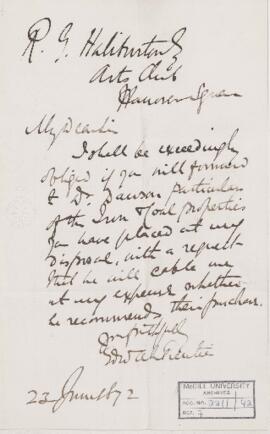 R. G. Haliburton Esq
Arts Club
Hanover Square
My dear Sir
I shall be exceedingly
obliged if you will forward
to Dr. Dawson particulars
of the Iron & Coal properties
you have placed at my
disposal, with a request
that he will cable me
at my expense whether
he recommends their purchase.
Yrs faithfully
Edw
23 June 1872
McGILL UNIVERSITY
ARCHIVES
ACC. NO. 2211 / 42
REF. 7